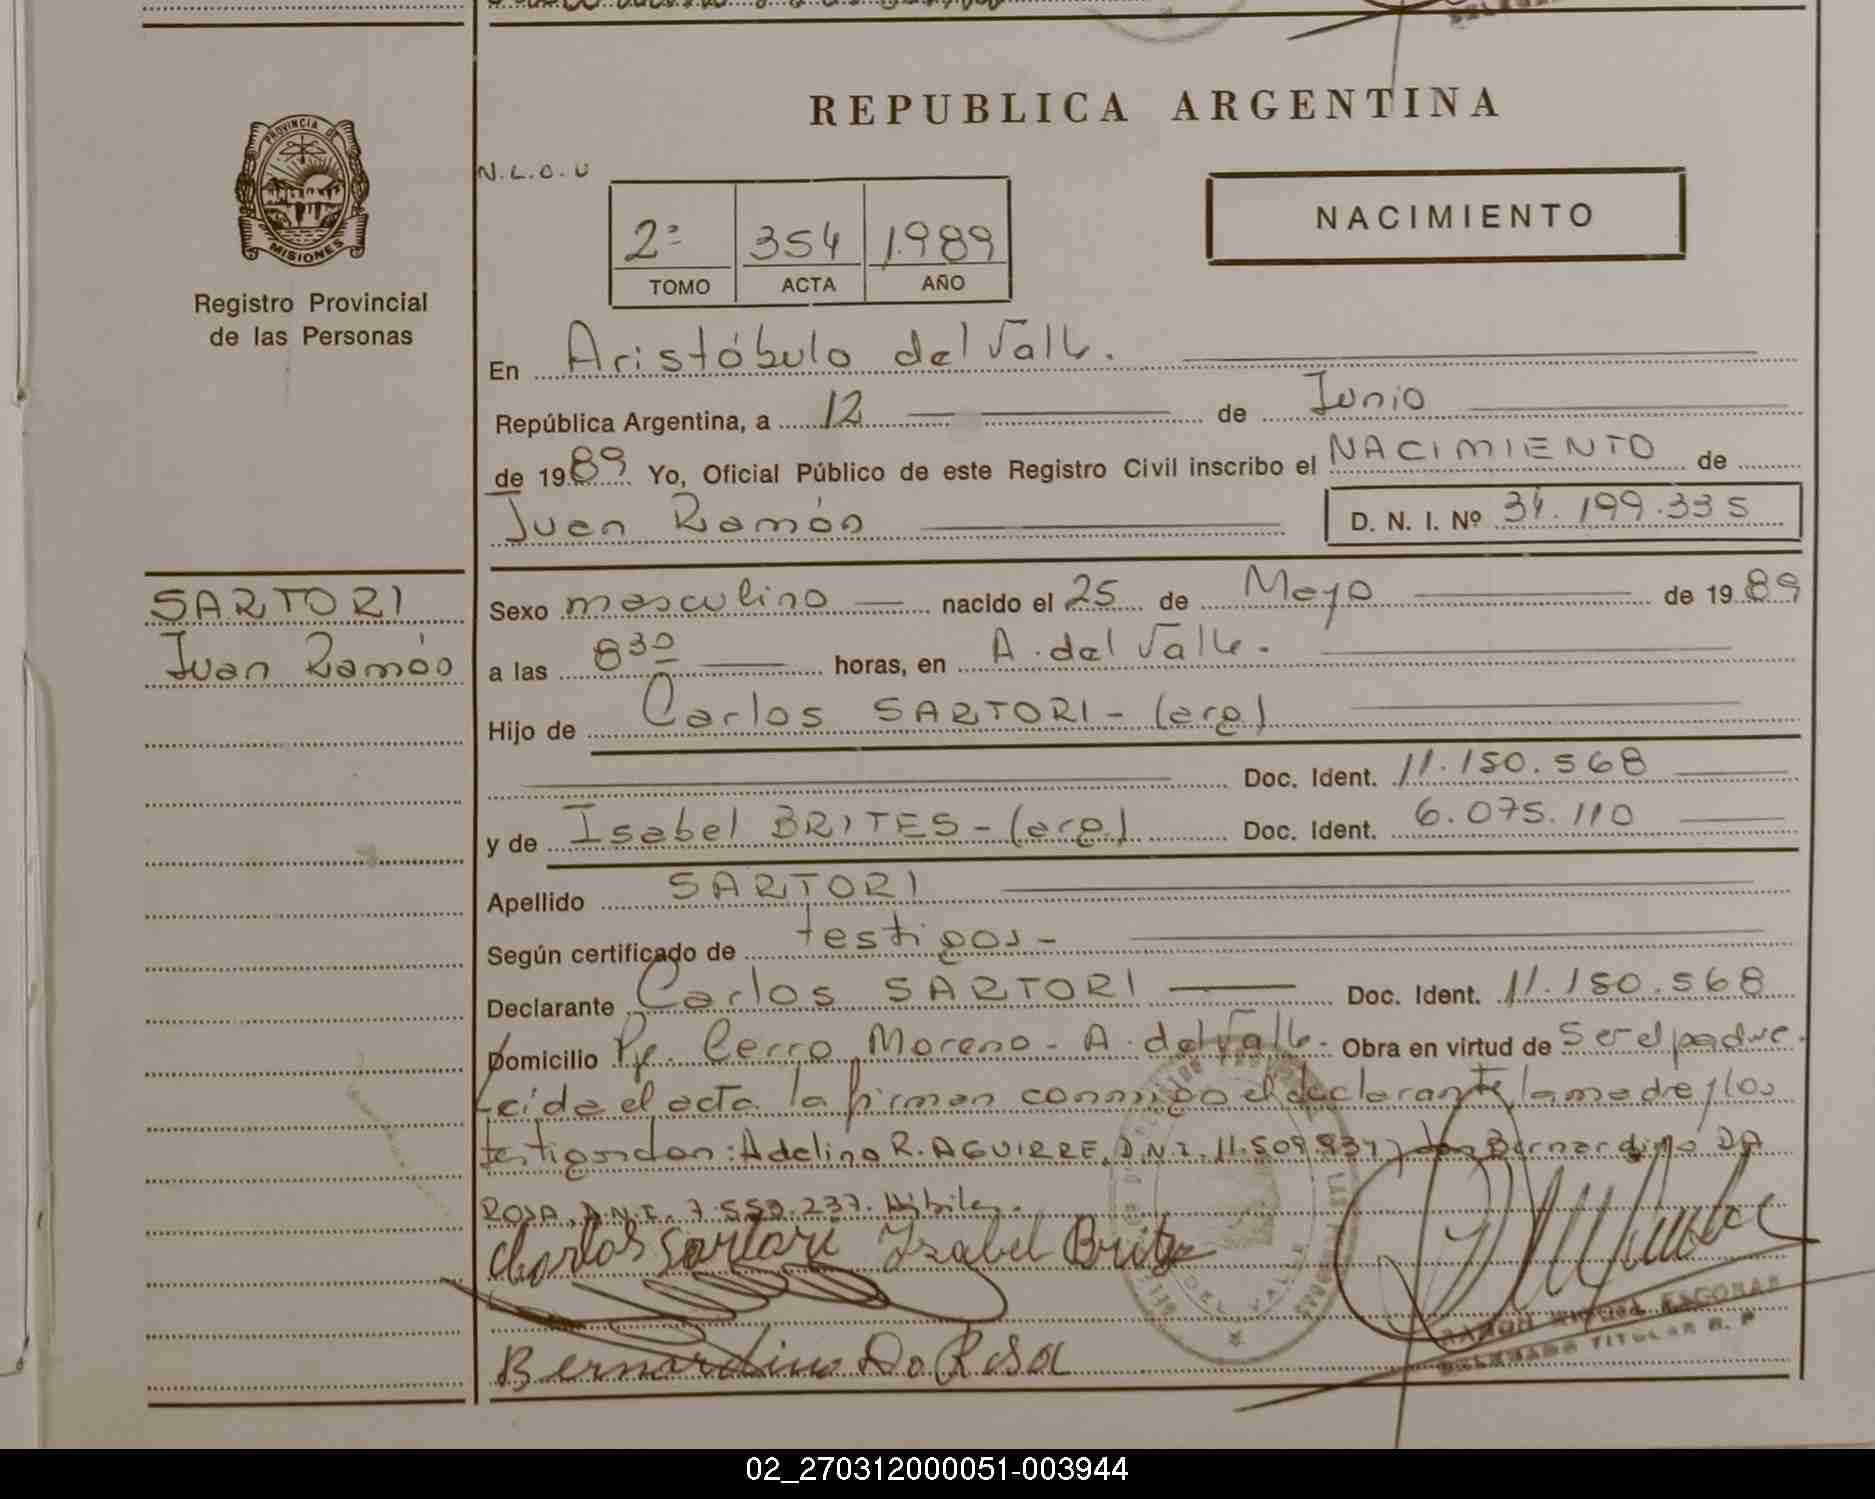 REPUBLICA ARGENTINA
PROVINCIA DE MISIONES
Registro Provincial
de las Personas
N.L.O.U
NACIMIENTO
2º 354 1.989
TOMO ACTA AÑO
En Aristóbulo del Valle.
República Argentina, a 12 de Junio
de 1989 Yo, Oficial Público de este Registro Civil inscribo el NACIMIENTO de
Juan Ramón D. N. I. Nº 34.199.335
SARTORI
Juan Ramón
Sexo masculino nacido el 25 de Mayo de 1989
a las 8 30 horas, en A. del Valle.
Hijo de Carlos SARTORI - (arg)
Doc. Ident. 11.150.568
y de Isabel BRITES - (arg.) Doc. Ident. 6.075.110
Apellido SARTORI
Según certificado de testigos -
Declarante Carlos SARTORI Doc. Ident. 11.150.568
Domicilio Pje. Cerro Moreno - A. del Valle - Obra en virtud de ser el padre.
Leida el acta la firman conmigo el declarante, la madre y los
testigos don: Adelino R. AGUIRRE, D.N.I. 11.509.937 y don Bernardino DA
ROSA, D.N.I. 7.559.237. Hábiles.
Carlos Sartori Izabel Brite
Bernardino Da Rosa
DEL VALLE
RAMON MIGUEL ESCOBAR
DELEGADO TITULAR R. P.
02_270312000051-003944